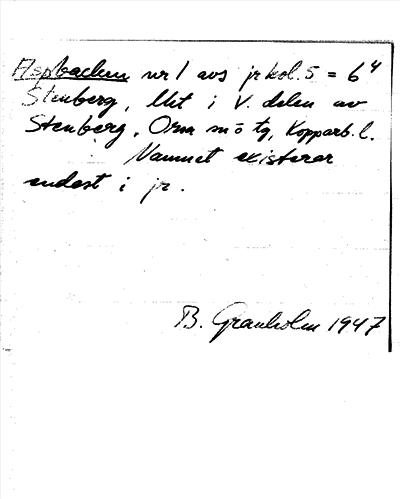 Aspbacken nr 1 avs jrkol. 5 = 6⁴
Stenberg, lht i V. delen av
Stenberg, Orsa sn ö tg, Kopparb. l.
Namnet existerar
endast i jr.
B. Granholm 1947